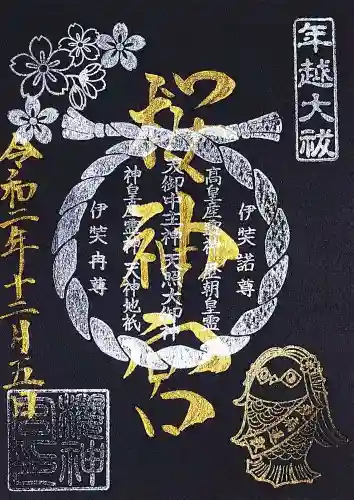 年越大祓
桜神宮
伊弉諾尊
高皇産霊神 歴朝皇霊
天御中主神 天照大御神
神皇産霊神 天神地祇
伊弉冉尊
令和二年十二月五日
櫻神
宮印